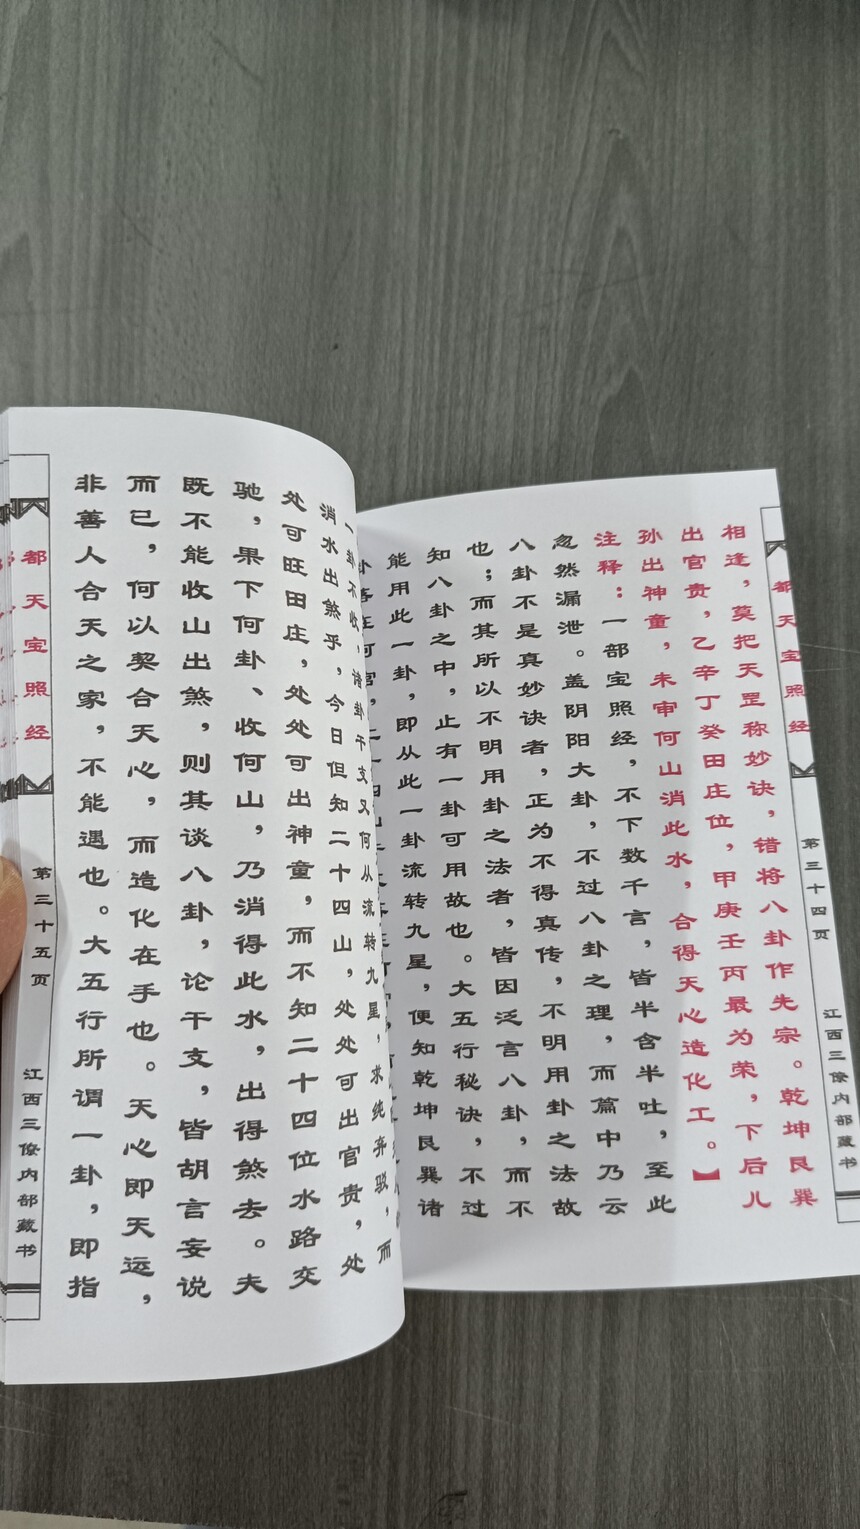 都天宝照经
第三十四页
江西三僚内部藏书
相逢，莫把天罡称妙诀，错将八卦作先宗。乾坤艮巽
出官贵，乙辛丁癸田庄位，甲庚壬丙最为荣，下后儿
孙出神童，未审何山消此水，合得天心造化工。】
注释：一部宝照经，不下数千言，皆半含半吐，至此
忽然漏泄。盖阴阳大卦，不过八卦之理，而篇中乃云
八卦不是真妙诀者，正为不得真传，不明用卦之法故
也；而其所以不明用卦之法者，皆因泛言八卦，而不
知八卦之中，止有一卦可用故也。大五行秘诀，不过
能用此一卦，即从此一卦流转九星，便知乾坤艮巽诸
一卦不收，诸卦干支又何从流转九星，求纯弃驳，而
消水出煞乎，今日但知二十四山，处处可出官贵，处
处可旺田庄，处处可出神童，而不知二十四位水路交
驰，果下何卦、收何山，乃消得此水，出得煞去。夫
既不能收山出煞，则其谈八卦，论干支，皆胡言妄说
而已，何以契合天心，而造化在手也。天心即天运，
非善人合天之家，不能遇也。大五行所谓一卦，即指
都天宝照经
第三十五页
江西三僚内部藏书